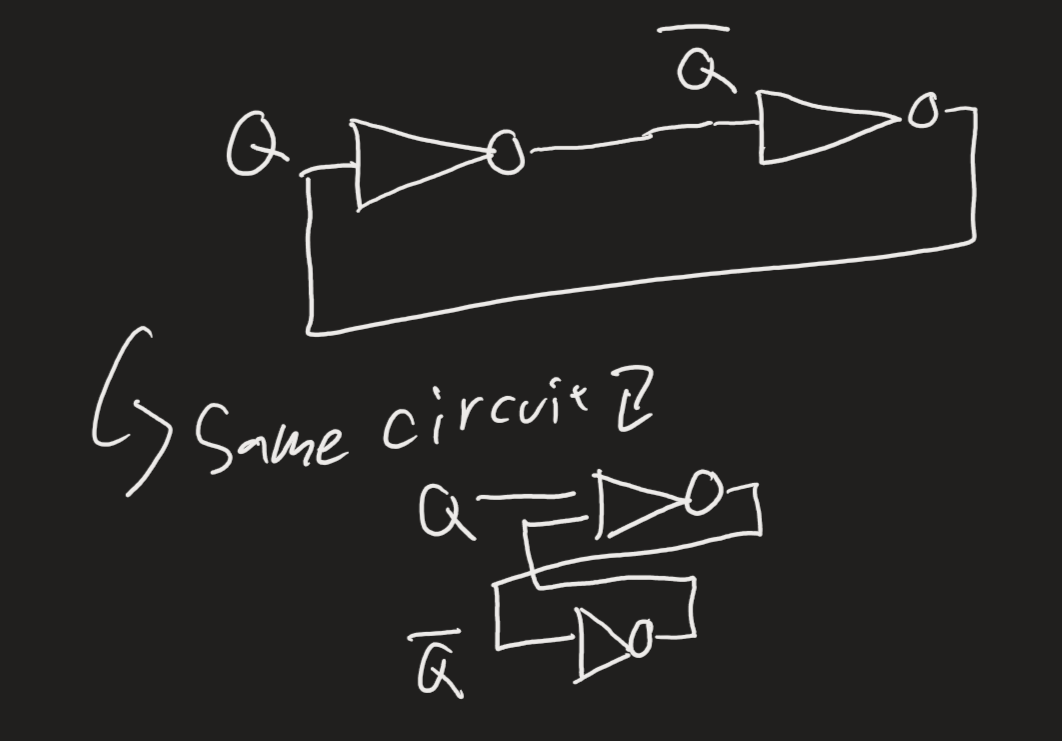 Q̅
Q
Same circuit?
Q
Q̅